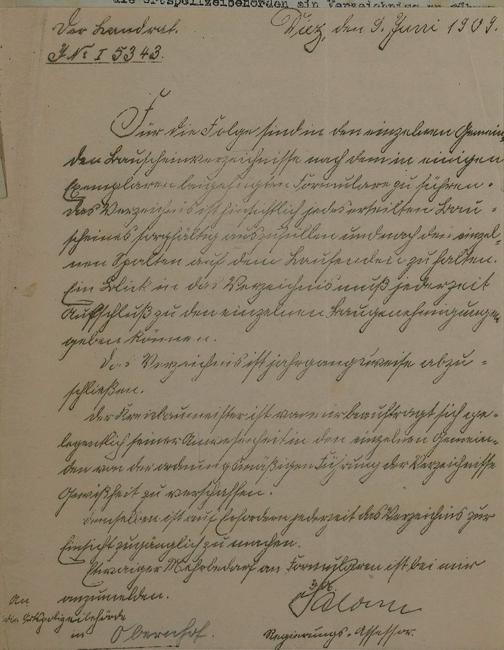 die Ortspolizeibehörden ein Verzeichnis
Der Landrat.
J. No I 5343.
Diez, den 9. Juni 1909.
Für die Folge sind in den einzelnen Gemein-
den Bauscheinverzeichnisse nach dem in einigen
Exemplaren beigefügten Formulare zu führen.
Das Verzeichnis ist hinsichtlich jedes erteilten Bau-
scheines sorgfältig auszufüllen und nach den einzel-
nen Spalten auf dem Laufenden zu halten.
Ein Blick in das Verzeichnis muß jederzeit
Aufschluß zu den einzelnen Baugenehmigungen
geben können.
Das Verzeichnis ist jahrgangsweise abzu-
schließen.
Der Kreisbaumeister ist von mir beauftragt sich ge-
legentlich seiner Anwesenheit in den einzelnen Gemein-
den von der ordnungsmäßigen Führung der Verzeichnisse
Gewißheit zu verschaffen.
Demselben ist auf Erfordern jederzeit das Verzeichnis zur
Einsicht zugänglich zu machen.
Etwaiger Mehrbedarf an Formularen ist bei mir
anzumelden.
An
die Ortspolizeibehörde
in Obernhof.
Regierungs-Assessor.